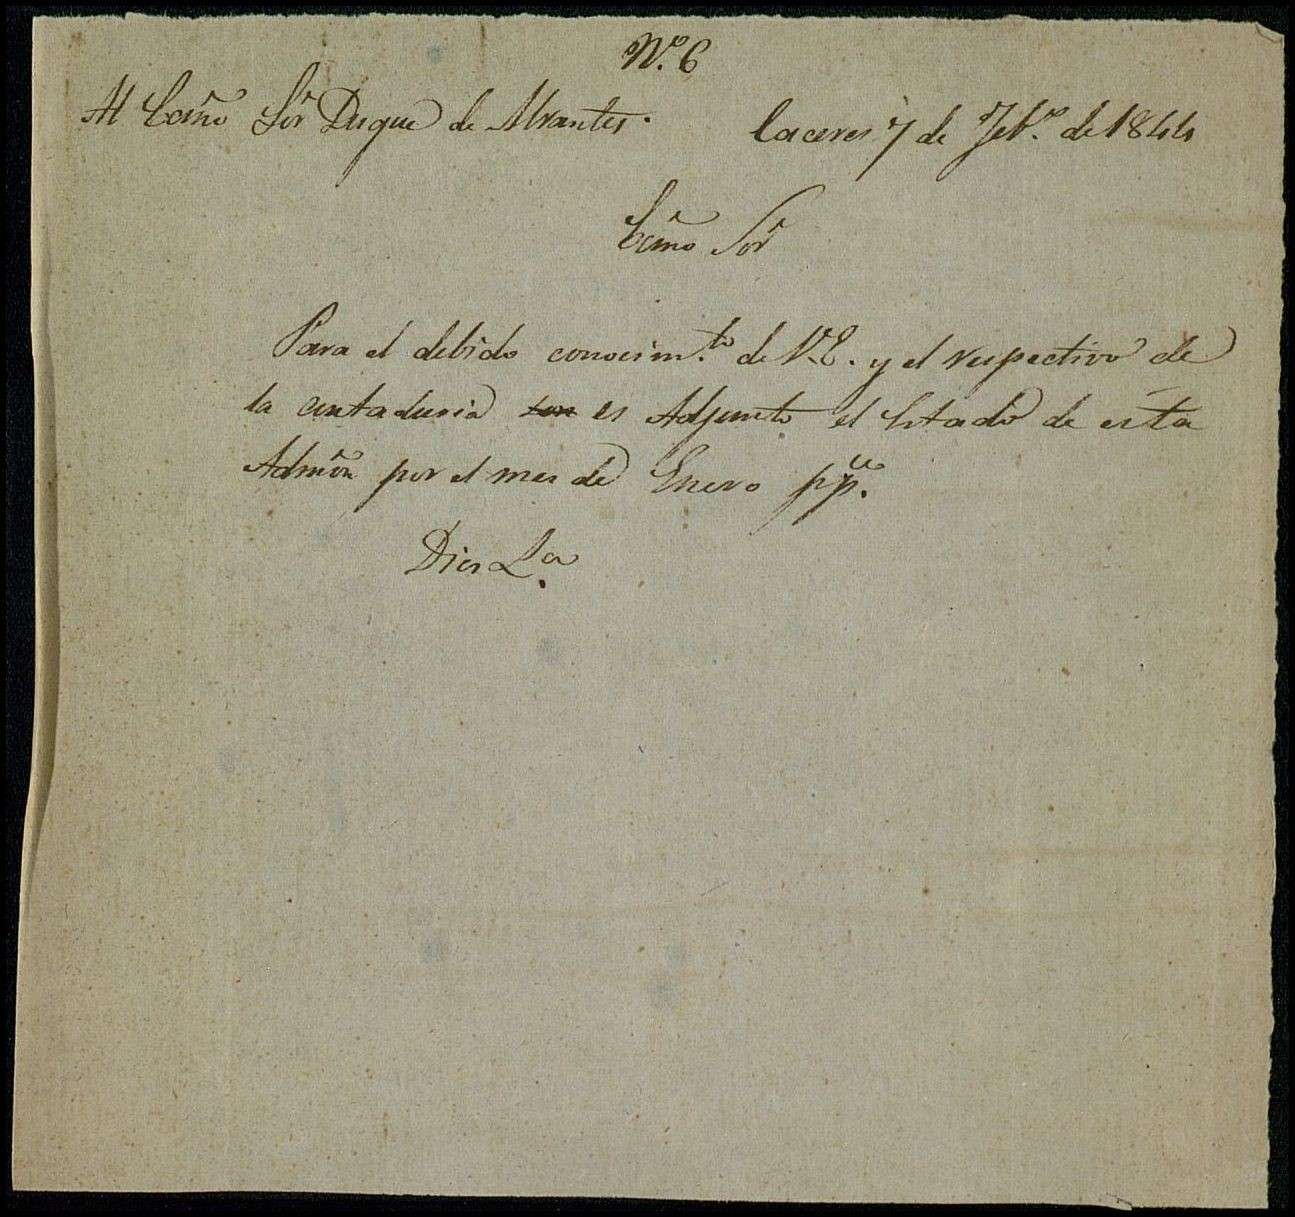 N.º 6
Al Ecmo Sor Duque de Abrantes. Caceres 7 de Feb.º de 1844
Ecmo Sor
Para el debido conocim.to de V.E. y el respectivo de
la contaduria es Adjunto el Estado de esta
Admon por el mes de Enero pp.º
Dios